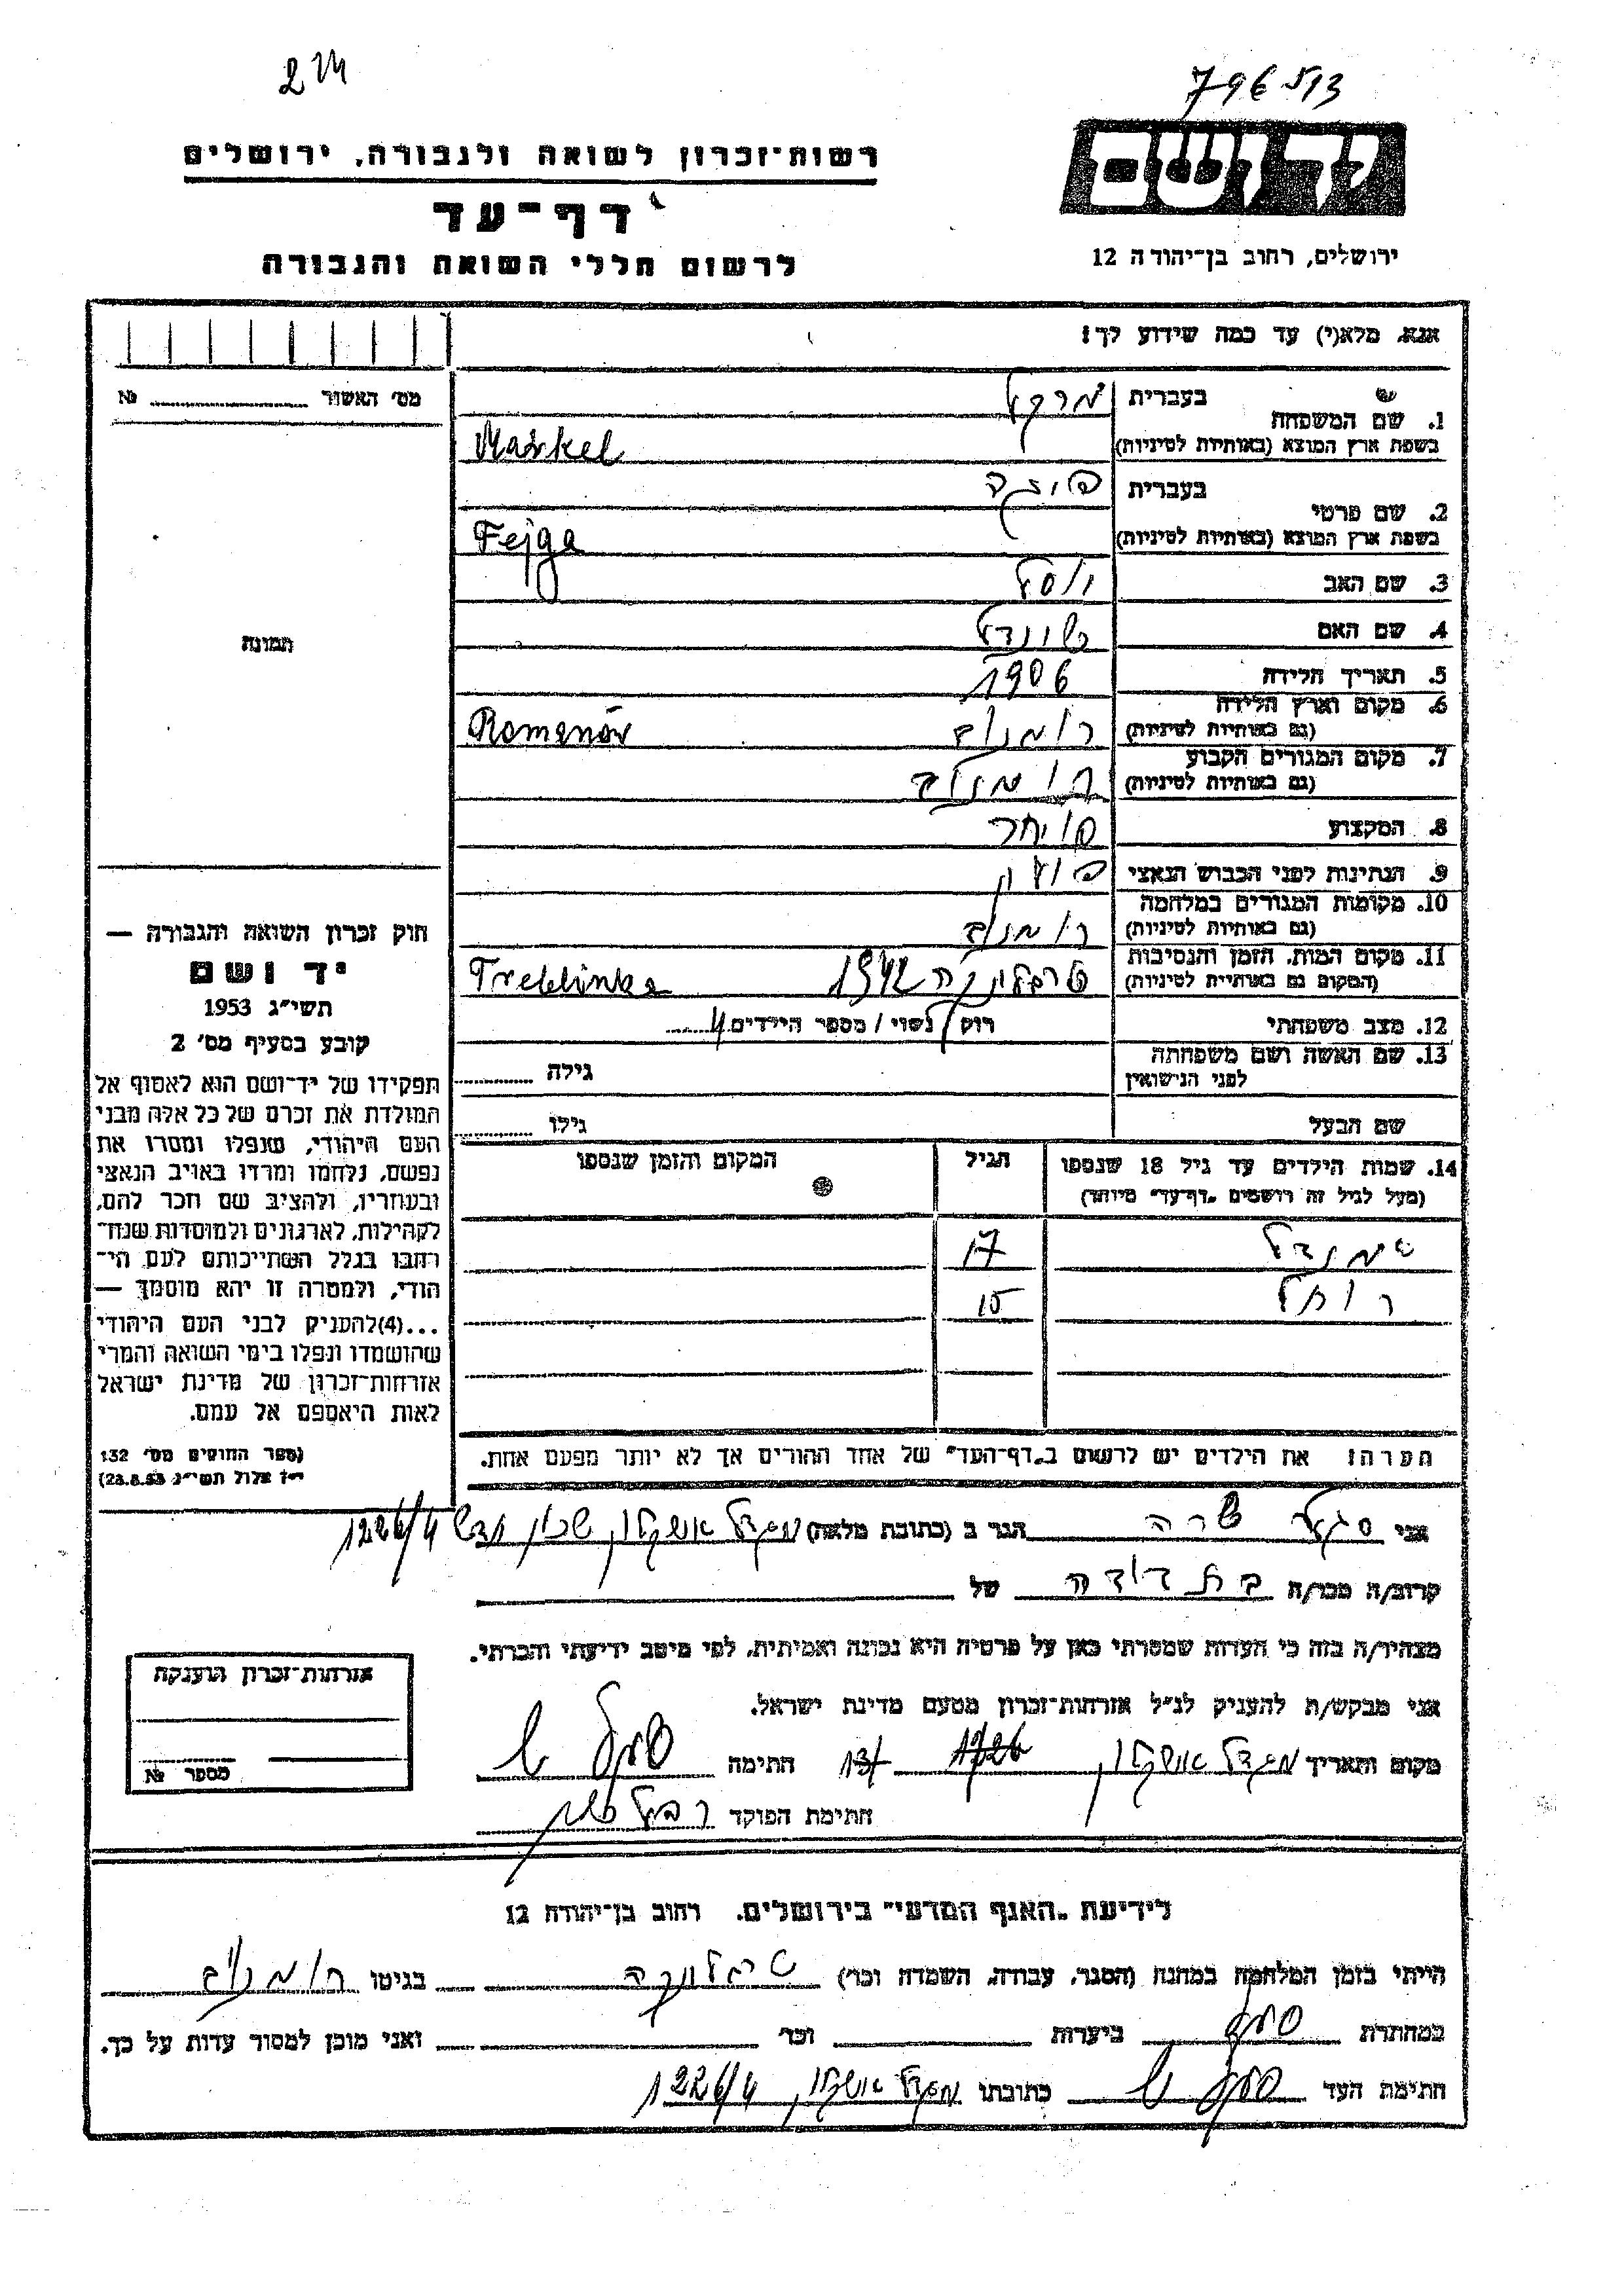 796513
יד ושם
ירושלים, רחוב בן־יהודה 12
רשות־זכרון לשואה ולגבורה, ירושלים
דף־עד
לרשום חללי השואה והגבורה
אנא, מלא(י) עד כמה שידוע לך!
מס׳ האשור №
1. שם המשפחה
בעברית מרקל
בשפת ארץ המוצא (באותיות לטיניות) Markel
2. שם פרטי
בעברית פויגה
בשפת ארץ המוצא (באותיות לטיניות) Fejga
3. שם האב יוסל
4. שם האם שינדל
5. תאריך הלידה 1906
6. מקום וארץ הלידה
(גם באותיות לטיניות) רומנוב Romanów
7. מקום המגורים הקבוע
(גם באותיות לטיניות) רומנוב
8. המקצוע סוחר
9. הנתינות לפני הכבוש הנאצי פולין
10. מקומות המגורים במלחמה
(גם באותיות לטיניות) רומנוב
11. מקום המות, הזמן והנסיבות
(המקום גם באותיות לטיניות) טרבלינקה 1942 Treblinka
12. מצב משפחתי רווק / נשוי / מספר הילדים 4
13. שם האשה ושם משפחתה
לפני הנישואין גילה
שם הבעל גילו
14. שמות הילדים עד גיל 18 שנספו הגיל המקום והזמן שנספו
(מעל לגיל זה רושמים „דף־עד״ מיוחד)
17
רחל 15
הערה: את הילדים יש לרשום ב„דף־העד״ של אחד ההורים אך לא יותר מפעם אחת.
תמונה
חוק זכרון השואה והגבורה —
יד ושם
תשי״ג 1953
קובע בסעיף מס׳ 2
תפקידו של יד־ושם הוא לאסוף אל
המולדת את זכרם של כל אלה מבני
העם היהודי, שנפלו ומסרו את
נפשם, נלחמו ומרדו באויב הנאצי
ובעוזריו, ולהציב שם וזכר להם,
לקהילות, לארגונים ולמוסדות שנח־
רבו בגלל השתייכותם לעם הי־
הודי, ולמטרה זו יהא מוסמך —
...(4) להעניק לבני העם היהודי
שהושמדו ונפלו בימי השואה והמרי
אזרחות־זכרון של מדינת ישראל
לאות היאספם אל עמם.
(ספר החוקים מס׳ 132
י״ז אלול תשי״ג 28.8.53)
אני סגל שרה הגר ב (כתובת מלאה) מגדל אשקלון שכון חדש 1226/4
קרוב/ה מכר/ה בת דודה של
מצהיר/ה בזה כי העדות שמסרתי כאן על פרטיה היא נכונה ואמיתית, לפי מיטב ידיעתי והכרתי.
אני מבקש/ת להעניק לנ״ל אזרחות־זכרון מטעם מדינת ישראל.
מקום ותאריך מגדל אשקלון חתימה סגל ש
חתימת הפוקד
אזרחות־זכרון הוענקה
מספר №
לידיעת „האגף המדעי״ בירושלים. רחוב בן־יהודה 12
הייתי בזמן המלחמה במחנה (הסגר, עבודה, השמדה וכר׳) טרבלינקה בגיטו רומנוב
במחתרת ביערות וכר׳ ואני מוכן למסור עדות על כך.
חתימת העד סגל ש כתובתו מגדל אשקלון 1226/4